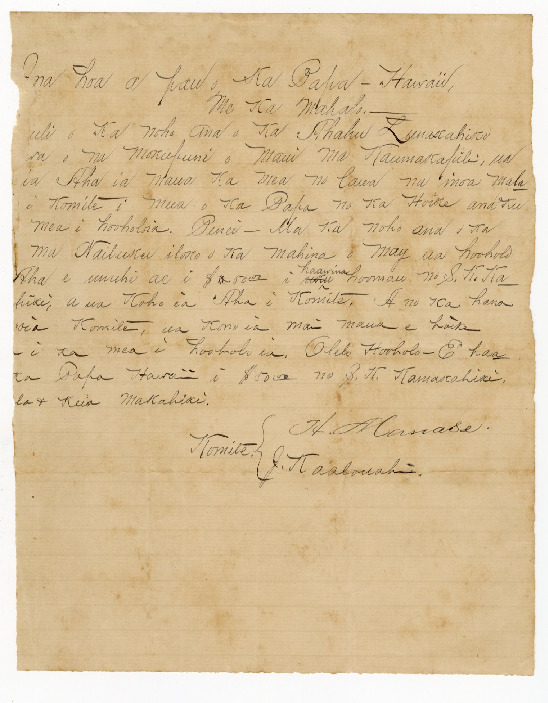 na hoa a pau o Ka Papa - Hawaii,
Me Ka Mahalo.
uli o Ka noho ana o Ka Ahahui Lunakahiko
o na Mokupuni o Maui ma Kaumakapili, ua
ia Aha ia maua Ka mea no laua na inoa mala
i Komite i mua o Ka Papa no Ka Hoike ana Ku
mea i hooholoia. Penei - Ma Ka noho ana o Ka
ma Wailuku iloko o Ka mahina o May ua hooholo
Aha e unuhi ae i i haawina hoomau no J. K. Ka
hiki, a ua Koho ia Aha i Komite. A no Ka hana
ia Komite, ua Kono ia mai maua e hoike
i Ka mea i hooholo ia. Olelo Hooholo - E haa
Ka Papa Hawaii i no J. K. Kamakahiki.
Keia Makahiki.
H. Manase.
Komite.
J.